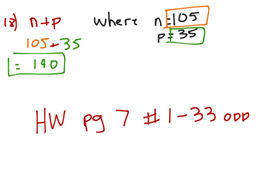 18) n+p where n=105
p=35
105+35
= 140
HW pg 7 # 1-33 ODD